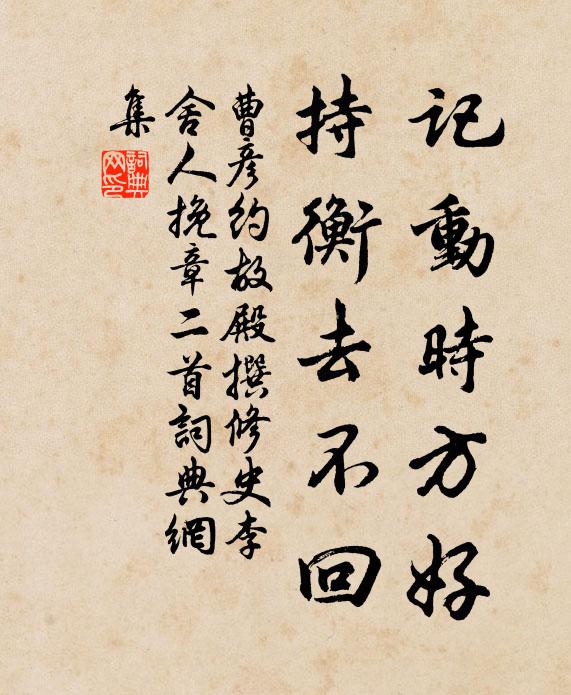 記動時方好
持衡去不回
曹彥約故殿撰修史李
舍人挽章二首詞典網
集
詞典
网印